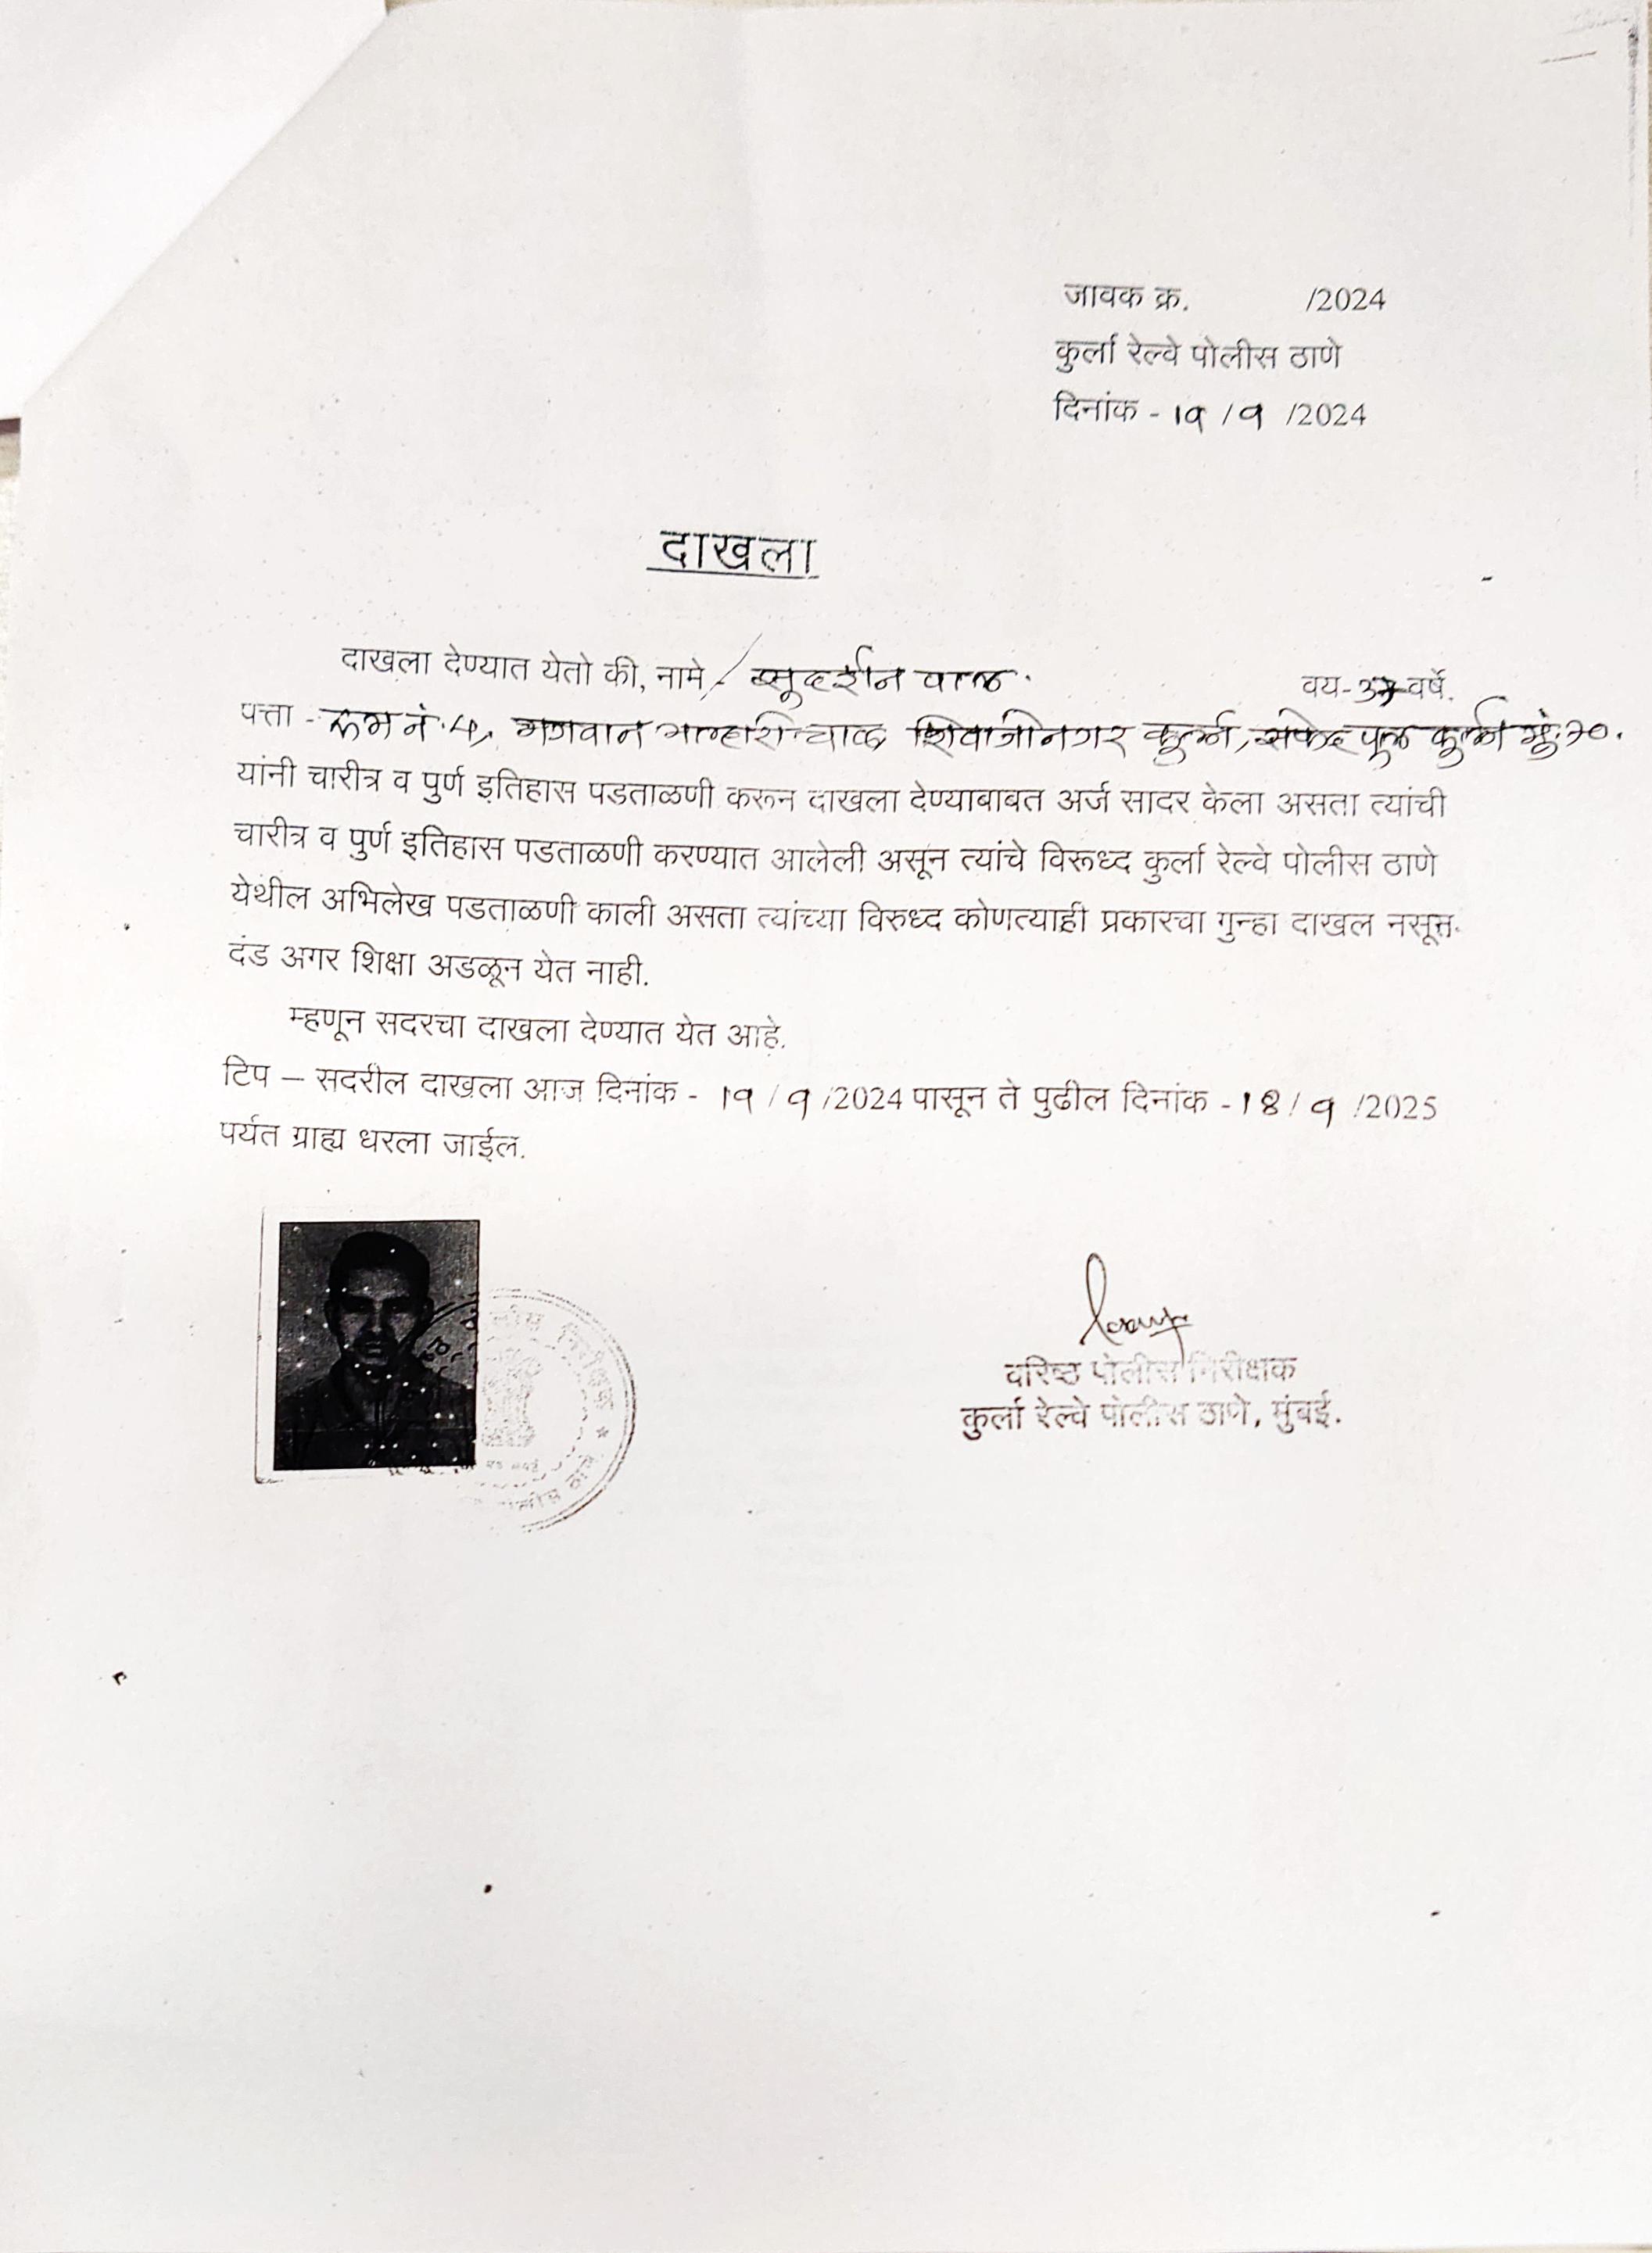 जावक क्र. /2024
कुर्ला रेल्वे पोलीस ठाणे
दिनांक - 19 / 9 /2024
दाखला
दाखला देण्यात येतो की, नामे / सुदर्शन पाल. वय- वर्षे.
पत्ता - रूम नं. 4, भगवान मल्हारी चाळ शिवाजीनगर कुर्ला, सफेद पूल कुर्ला मुं. 70.
यांनी चारीत्र व पुर्ण इतिहास पडताळणी करून दाखला देण्याबाबत अर्ज सादर केला असता त्यांची
चारीत्र व पुर्ण इतिहास पडताळणी करण्यात आलेली असून त्यांचे विरूध्द कुर्ला रेल्वे पोलीस ठाणे
येथील अभिलेख पडताळणी काली असता त्यांच्या विरुध्द कोणत्याही प्रकारचा गुन्हा दाखल नसून
दंड अगर शिक्षा अडळून येत नाही.
म्हणून सदरचा दाखला देण्यात येत आहे.
टिप – सदरील दाखला आज दिनांक - 19 / 9 /2024 पासून ते पुढील दिनांक - 18 / 9 /2025
पर्यत ग्राह्य धरला जाईल.
वरिष्ठ पोलीस निरीक्षक
कुर्ला रेल्वे पोलीस ठाणे, मुंबई.